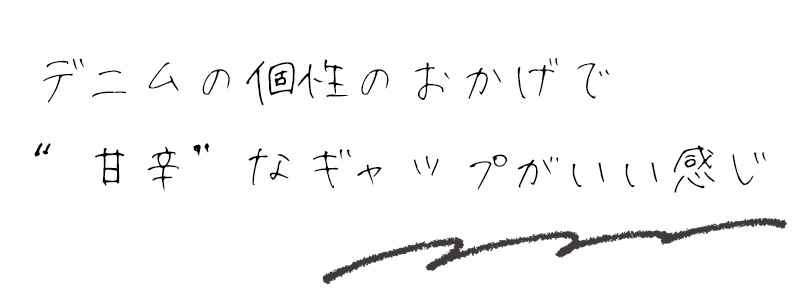 デニムの個性のおかげで
“甘辛”なギャップがいい感じ